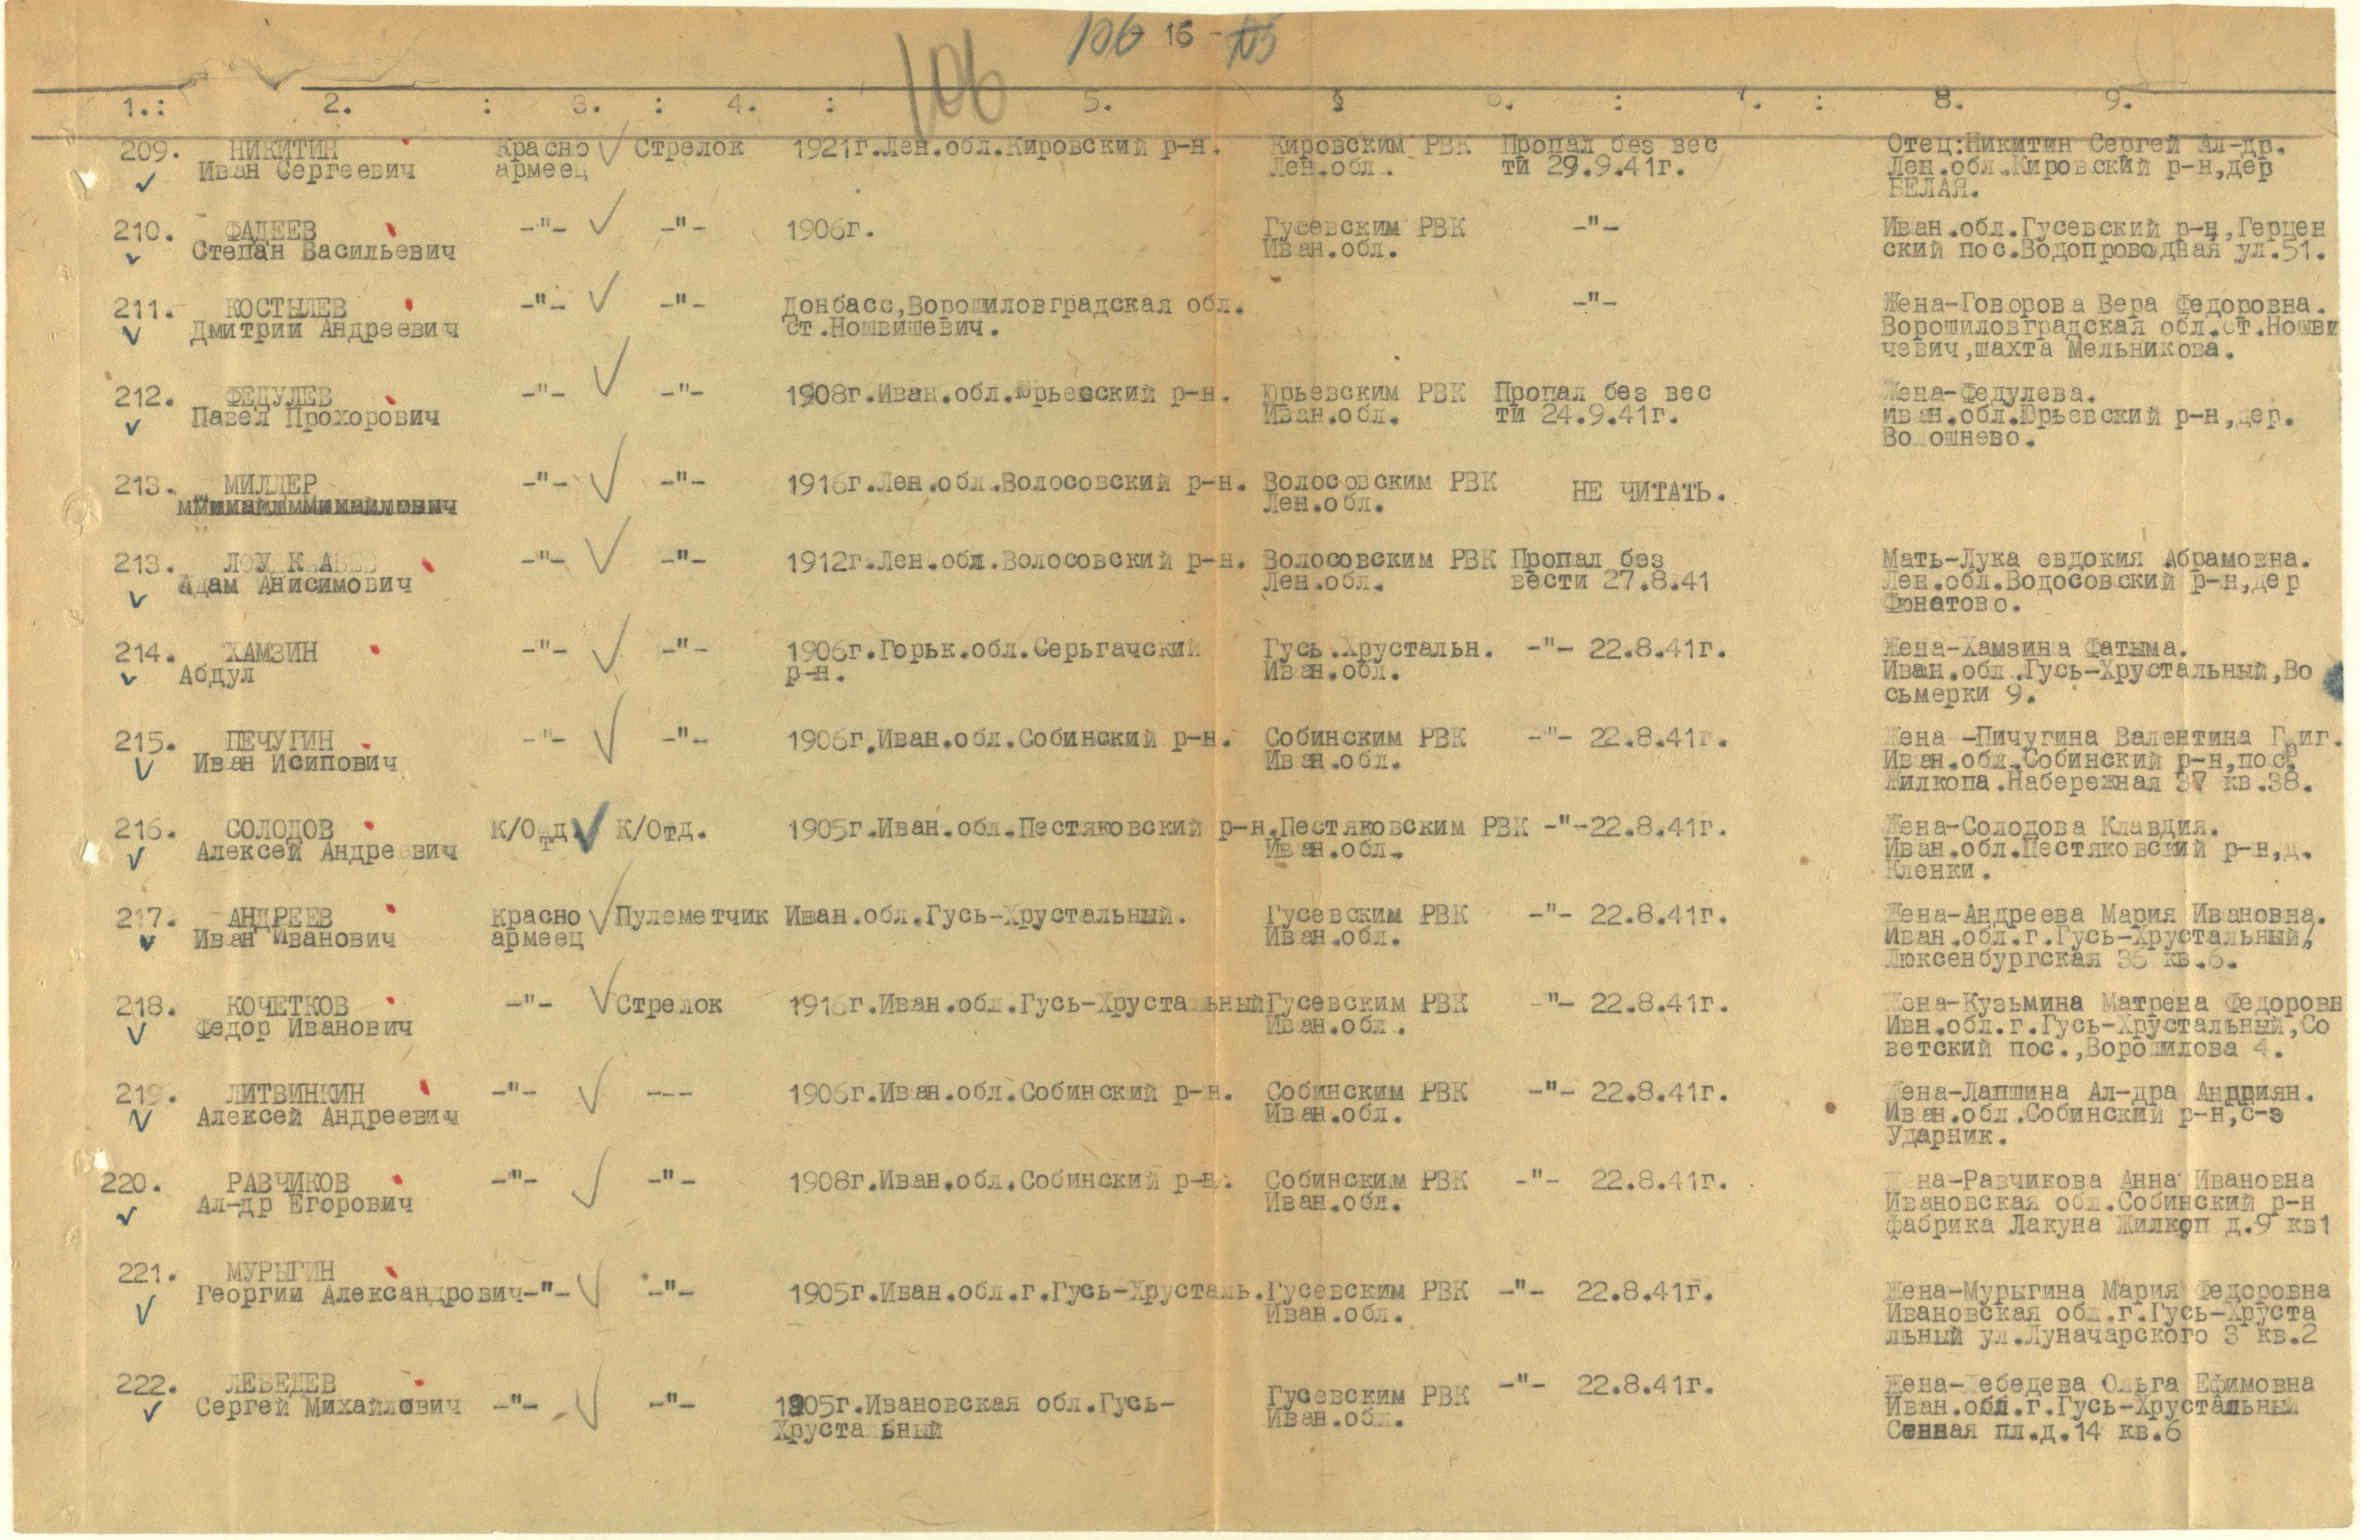 106 16 - 105
106
1.: 2. : 3. : 4. : 5. § 6. : 7. : 8. 9.
209. НИКИТИН Красно Стрелок 1921г.Лен.обл.Кировский р-н. Кировским РВК Пропал без вес Отец:Никитин Сергей Ал-др.
Иван Сергеевич армеец Лен.обл. ти 29.9.41г. Лен.обл.Кировский р-н,дер
БЕЛАЯ.
210. ФАДЕЕВ -"- -"- 1906г. Гусевским РВК -"- Иван.обл.Гусевский р-н,Герцен
Степан Васильевич Иван.обл. ский пос.Водопроводная ул.51.
211. КОСТЫЛЕВ -"- -"- Донбасс,Ворошиловградская обл. -"- Жена-Говорова Вера Федоровна.
Дмитрии Андреевич ст.Ношвишевич. Ворошиловградская обл.ст.Ношви
чевич,шахта Мельникова.
212. ФЕДУЛЕВ -"- -"- 1908г.Иван.обл.Юрьевский р-н. Юрьевским РВК Пропал без вес Жена-Федулева.
Павел Прохорович Иван.обл. ти 24.9.41г. Иван.обл.Юрьевский р-н,дер.
Во ошнево.
213. МИЛЛЕР -"- -"- 1916г.Лен.обл.Волосовский р-н. Волосовским РВК НЕ ЧИТАТЬ.
Лен.обл.
213. -"- -"- 1912г.Лен.обл.Волосовский р-н. Волосовским РВК Пропал без Мать-Лука евдокия Абрамовна.
Адам Анисимович Лен.обл. вести 27.8.41 Лен.обл.Водосовский р-н,дер
Фонатово.
214. ХАМЗИН -"- -"- 1906г.Горьк.обл.Серьгачский Гусь.Хрустальн. -"- 22.8.41г. Жена-Хамзина Фатыма.
Абдул р-н. Иван.обл. Иван.обл.Гусь-Хрустальный,Во
сьмерки 9.
215. ПЕЧУГИН -"- -"- 1906г.Иван.обл.Собинский р-н. Собинским РВК -"- 22.8.41г. Жена -Пичугина Валентина Григ.
Иван Исипович Иван.обл. Иван.обл.Собинский р-н,пос.
Жилкопа.Набережная 37 кв.38.
216. СОЛОДОВ К/Отд К/Отд. 1905г.Иван.обл.Пестяковский р-н.Пестяковским РВК -"-22.8.41г. Жена-Солодова Клавдия.
Алексей Андреевич Иван.обл. Иван.обл.Пестяковский р-н,д.
Кленки.
217. АНДРЕЕВ Красно Пулеметчик Иван.обл.Гусь-Хрустальный. Гусевским РВК -"- 22.8.41г. Жена-Андреева Мария Ивановна.
Иван Иванович армеец Иван.обл. Иван.обл.г.Гусь-Хрустальный,
Люксенбургская 36 кв.6.
218. КОЧЕТКОВ -"- Стрелок 1916г.Иван.обл.Гусь-Хрустальный Гусевским РВК -"- 22.8.41г. Жена-Кузьмина Матрена Федоровн
Федор Иванович Иван.обл. Ивн.обл.г.Гусь-Хрустальный,Со
ветский пос.,Ворошилова 4.
219. ЛИТВИНКИН -"- --- 1906г.Иван.обл.Собинский р-н. Собинским РВК -"- 22.8.41г. Жена-Лапшина Ал-дра Андриян.
Алексей Андреевич Иван.обл. Иван.обл.Собинский р-н,с-э
Ударник.
220. РАВЧИКОВ -"- -"- 1908г.Иван.обл.Собинский р-н. Собинским РВК -"- 22.8.41г. Жена-Равчикова Анна Ивановна
Ал-др Егорович Иван.обл. Ивановская обл.Собинский р-н
фабрика Лакуна Жилкоп д.9 кв1
221. МУРЫГИН
Георгии Александрович-"- -"- 1905г.Иван.обл.г.Гусь-Хрусталь.Гусевским РВК -"- 22.8.41г. Жена-Мурыгина Мария Федоровна
Иван.обл. Ивановская обл.г.Гусь-Хруста
льный ул.Луначарского 3 кв.2
222. ЛЕБЕДЕВ -"- 22.8.41г. Жена-Лебедева Ольга Ефимовна
Сергей Михайлович -"- -"- 1905г.Ивановская обл.Гусь- Гусевским РВК Иван.обл.г.Гусь-Хрустальный
Хрустальный Иван.обл. Сенная пл.д.14 кв.6